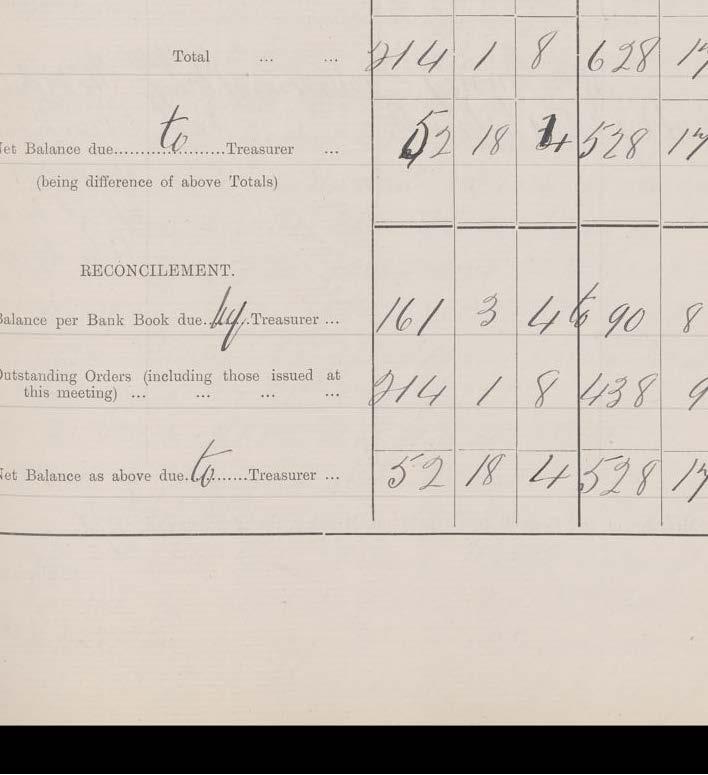 Total ... ... 214 1 8 628 17
Net Balance due to Treasurer ... 52 18 4 528 17
(being difference of above Totals)
RECONCILEMENT.
Balance per Bank Book due by Treasurer ... 161 3 4 to 90 8
Outstanding Orders (including those issued at
this meeting) ... ... ... ... 214 1 8 438 9
Net Balance as above due to Treasurer ... 52 18 4 528 17